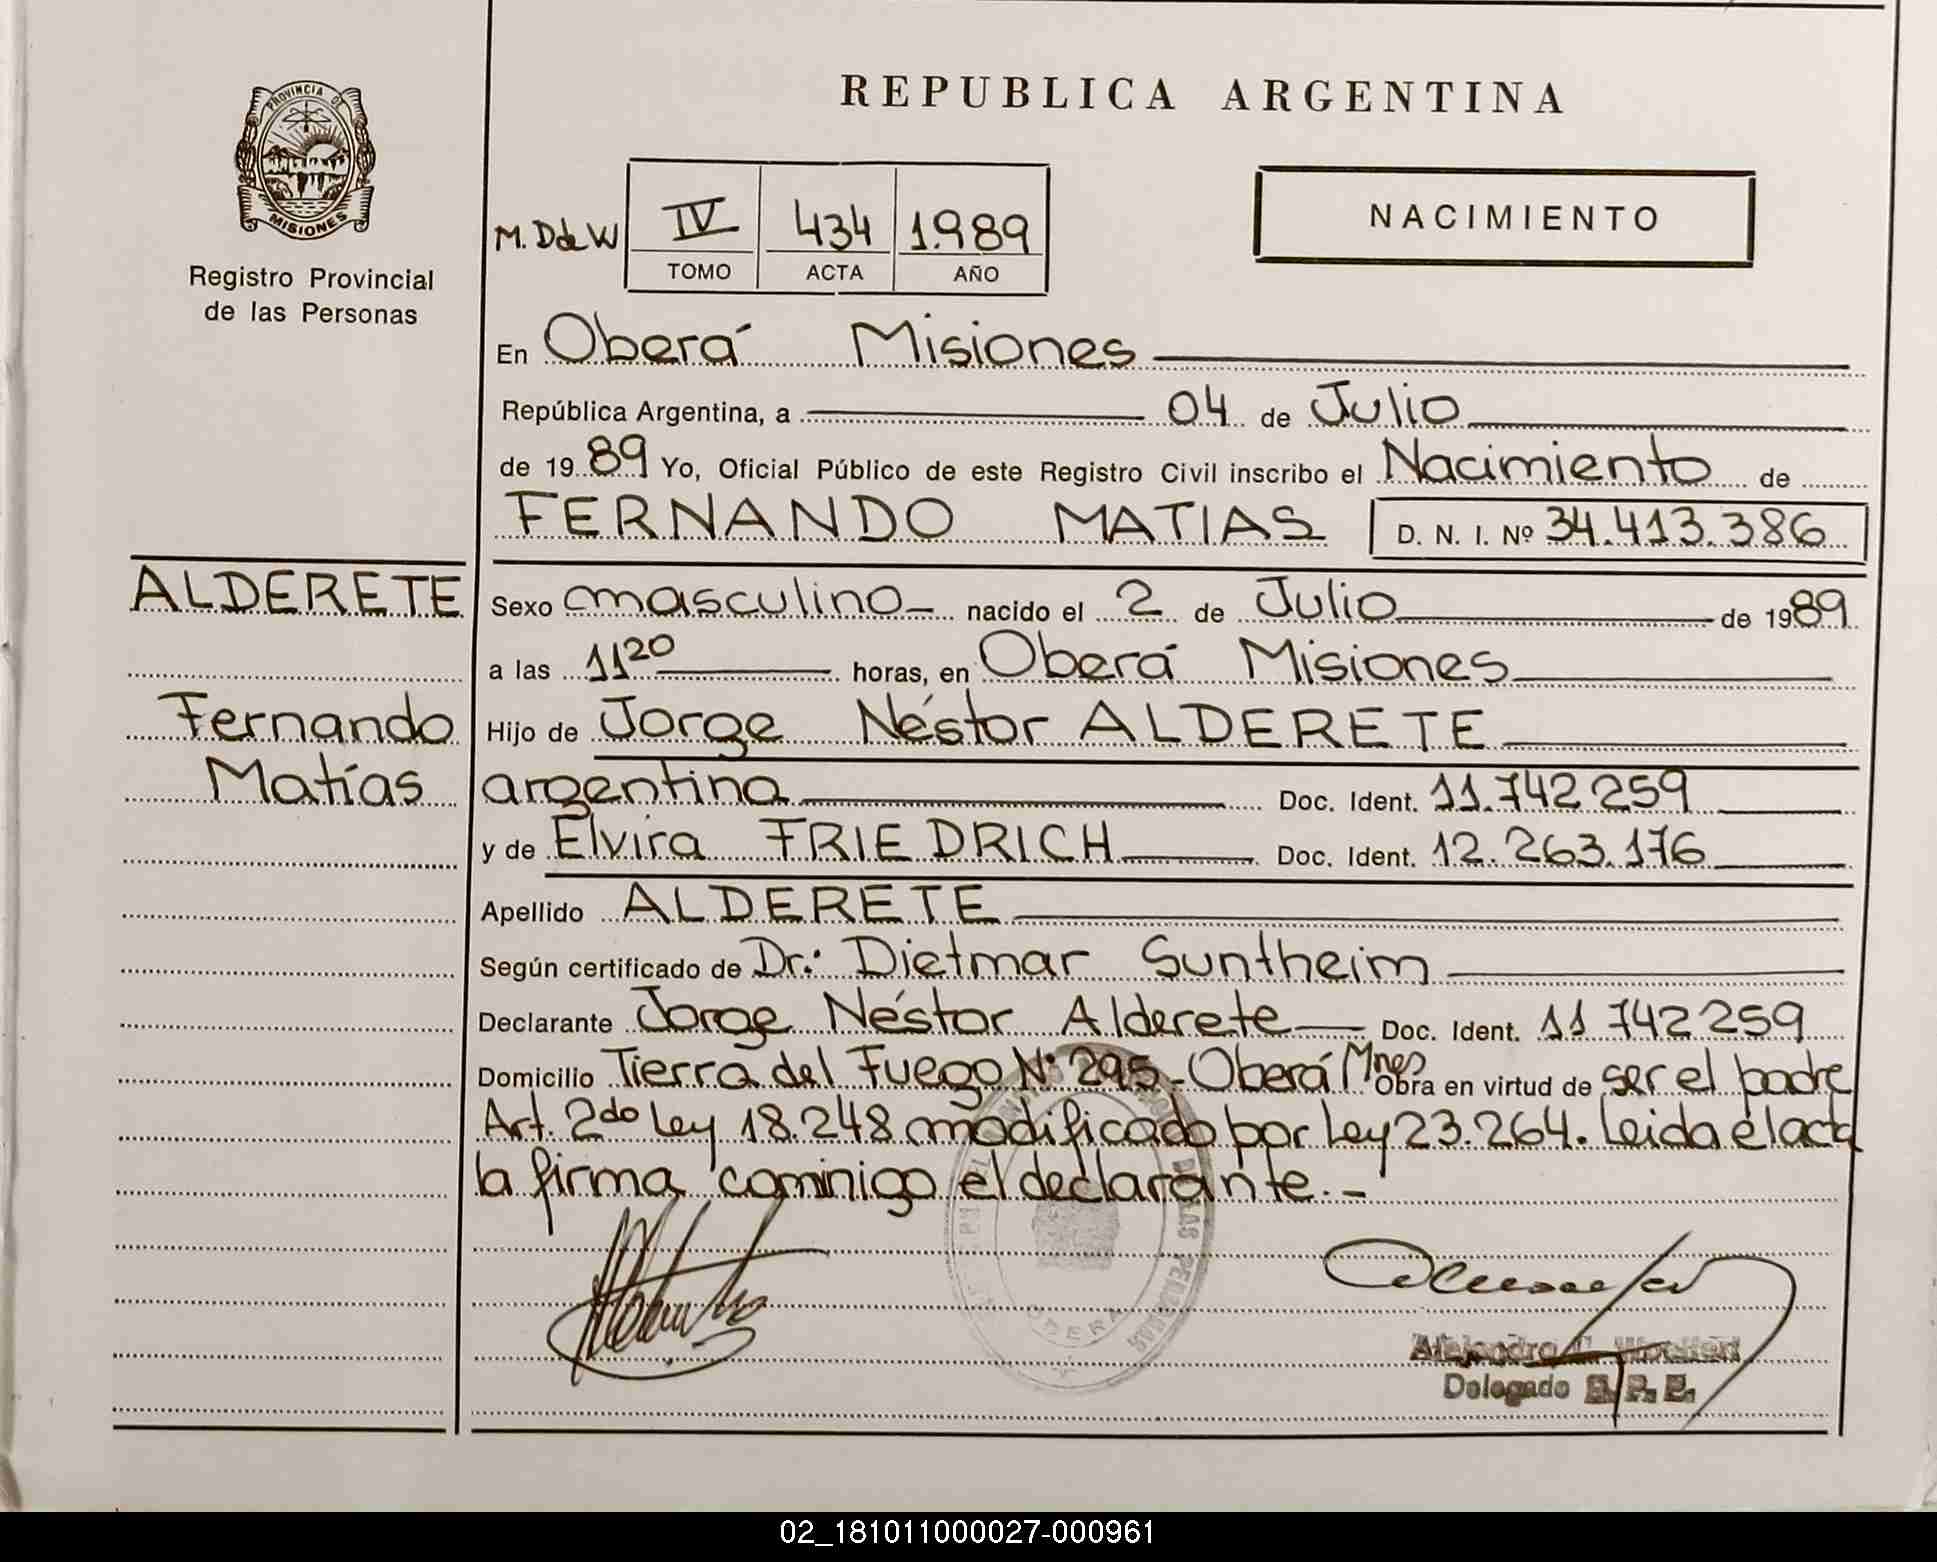 REPUBLICA ARGENTINA
PROVINCIA DE
MISIONES
Registro Provincial
de las Personas
M. D de W
IV 434 1.989
TOMO ACTA AÑO
NACIMIENTO
En Oberá Misiones
República Argentina, a 04 de Julio
de 1989 Yo, Oficial Público de este Registro Civil inscribo el Nacimiento de
FERNANDO MATIAS D. N. I. Nº 34.413.386
ALDERETE
Fernando
Matías
Sexo masculino nacido el 2 de Julio de 1989
a las 11 20 horas, en Oberá Misiones
Hijo de Jorge Néstor ALDERETE
argentina Doc. Ident. 11.742 259
y de Elvira FRIEDRICH Doc. Ident. 12.263.176
Apellido ALDERETE
Según certificado de Dr.: Dietmar Suntheim
Declarante Jorge Néstor Alderete Doc. Ident. 11 742 259
Domicilio Tierra del Fuego Nº 295-Oberá Mnes Obra en virtud de ser el padre
Art. 2do Ley 18.248 modificado por Ley 23.264. Leida el acta
la firma comnigo el declarante.-
OBERA
Alejandro
Delegado R. P. P.
02_181011000027-000961